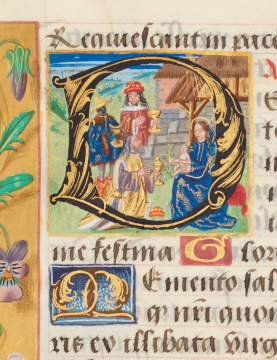 Requiescant in pace
D
me festina Glor
Memento sal
q nri quon
ris ex illibata virg